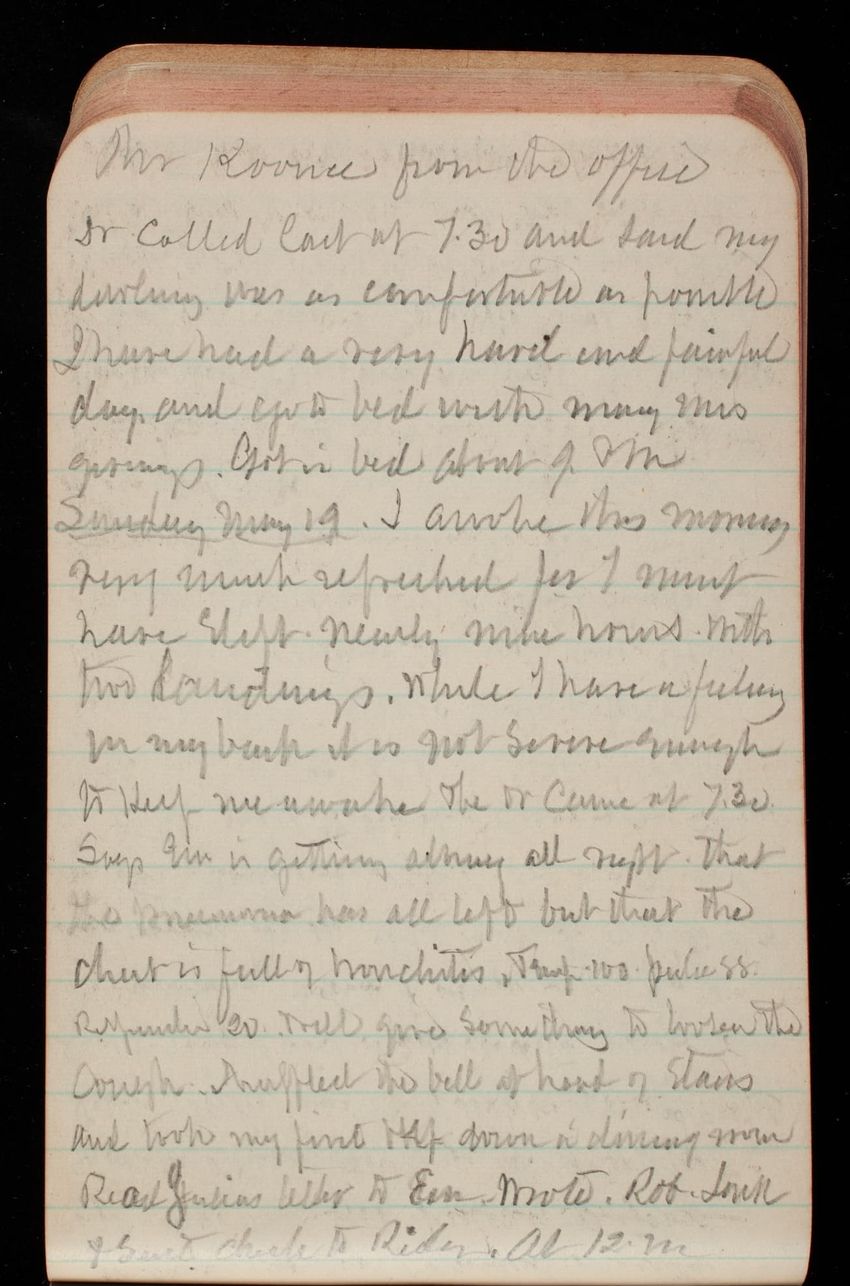 Mr Koonce from the office
Dr Called last at 7.30 and said my
darling was as comfortable as possible
I have had a very hard and painful
day. and go to bed with many mis
givings. Got in bed about 9.
Sunday May 19. I awoke this morning
very much refreshed for I must
have slept nearly nine hours. With
two. While I have a feeling
in my back it is not severe enough
to Keep me awake The Dr Came at 7.30
Says Em is getting along all right. That
the pneumonia has all left but that the
chest is full of bronchitis, Temp. 100. pulse 88.
Respiration 20. Will give something to loosen the
Cough. Muffled the bell at head of Stairs
and took my first down in dining room
Read Julias letter to Em. Wrote. Rob.
& Sent check to Rider. At 12. m